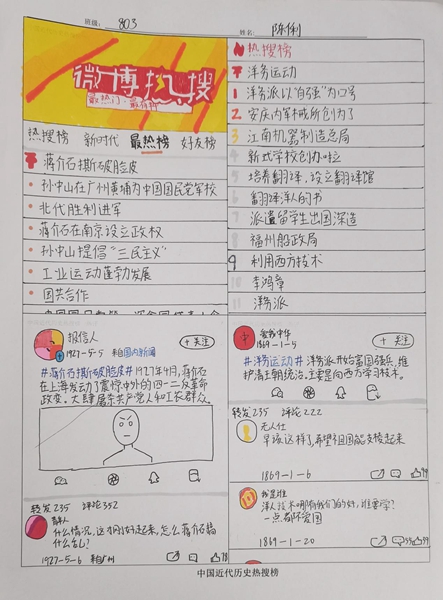 班级: 803
姓名: 陈俐
微博热搜
最热门·最有料
热搜榜 新时代 最热榜 好友榜
蒋介石撕破脸皮
孙中山在广州黄埔为中国国民党军校
北伐胜利进军
蒋介石在南京设立政权
孙中山提倡“三民主义”
工业运动蓬勃发展
国共合作
热搜榜
洋务运动
1 洋务派以“自强”为口号
2 安庆内军械所创办了
3 江南机器制造总局
4 新式学校创办啦
5 培养翻译,设立翻译馆
6 翻译洋人的书
7 派遣留学生出国深造
8 福州船政局
9 利用西方技术
10 李鸿章
11 洋务派
报信人
1927-5-5 来自国内新闻
+关注
#蒋介石撕破脸皮# 1927年4月,蒋介石
在上海发动了震惊中外的四一二反革命
政变。大肆屠杀共产党人和工农群众。
转发235 评论352
什么情况,这才刚好起来,怎么蒋介石搞
什么乱?
1927-5-6 来自广州
爱我中华
1869-1-5
+关注
#洋务运动# 洋务派开始富国强兵,维
护清王朝统治。主要是向西方学习技术。
转发235 评论222
无人仕
早该这样了,希望祖国能支棱起来
1869-1-6
我是谁
洋人技术哪有我们的好,谁要学?
一点都不爱国
1869-1-20
中国近代历史热搜榜